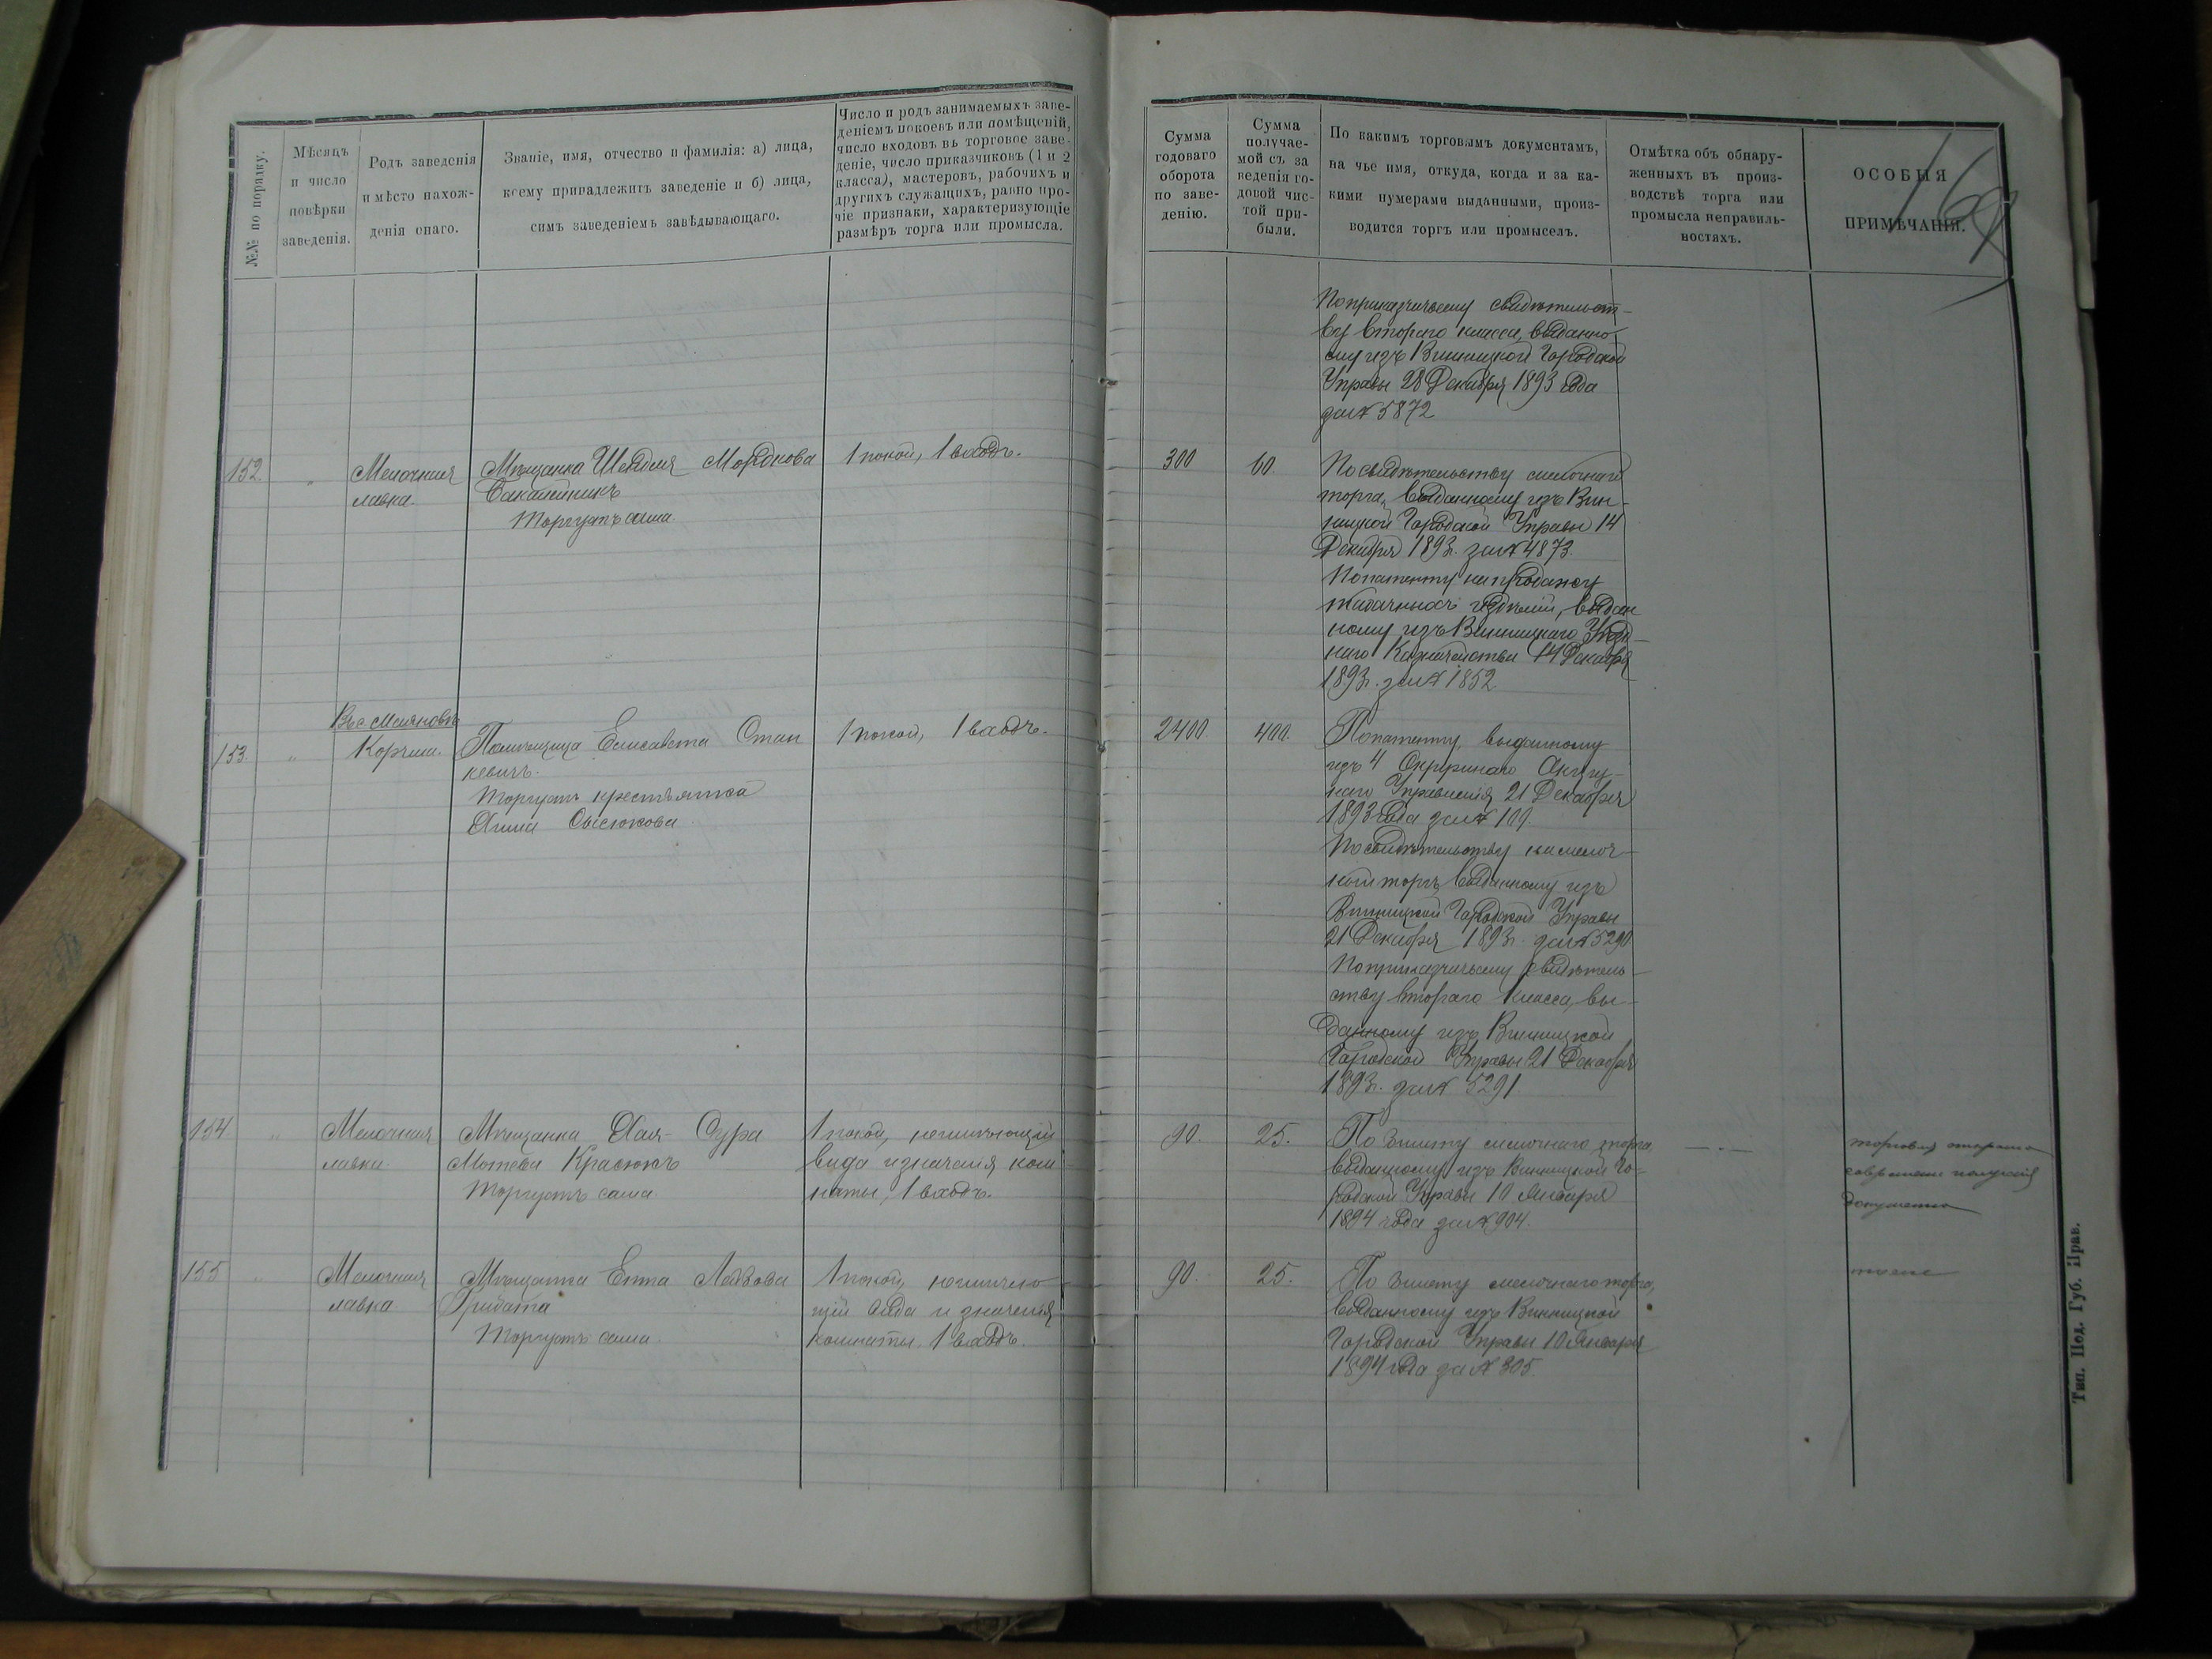 №№ по порядку.
Мѣсяцъ
и число
повѣрки
заведенія.
Родъ заведенія
и мѣсто нахож-
денія онаго.
Званіе, имя, отчество и фамилія: а) лица,
коему принадлежитъ заведеніе и б) лица,
симъ заведеніемъ завѣдывающаго.
Число и родъ занимаемыхъ заве-
деніемъ покоевъ или помѣщеній,
число входовъ въ торговое заве-
деніе, число приказчиковъ (1 и 2
класса), мастеровъ, рабочихъ и
другихъ служащихъ, равно про-
чіе признаки, характеризующіе
размѣръ торга или промысла.
Сумма
годоваго
оборота
по заве-
денію.
Сумма
получае-
мой съ за
веденія го-
довой чис-
той при-
были.
По какимъ торговымъ документамъ,
на чье имя, откуда, когда и за ка-
кими нумерами выданными, произ-
водится торгъ или промыселъ.
Отмѣтка объ обнару-
женныхъ въ произ-
водствѣ торга или
промысла неправиль-
ностяхъ.
ОСОБЫЯ
ПРИМѢЧАНІЯ.
По приказчичьему свидѣтельст-
ву втораго класса, выданно-
му изъ Винницкой Городской
Управы 28 Декабря 1893 года
за № 5872
152.
"
Мелочная
лавка.
Мѣщанка Шейдля Мордкова
Торгуетъ сама.
1 покой, 1 входъ.
300
60.
По свидѣтельству мелочнаго
торга, выданному изъ Вин-
ницкой Городской Управы 14
Декабря 1893г. за № 4873.
По патенту на продажу
табачныхъ издѣлій, выдан
ному изъ Винницкаго Уѣзд-
наго Казначейства 14 Декабря
1893г. за № 1852
Въ с.
153.
"
Корчма.
Помѣщица Елисавета Стан
кевичъ.
Торгуетъ крестьянка
Анна
1 покой, 1 входъ.
2400
400.
По патенту, выданному
изъ 4 Окружнаго Акциз-
наго Управленія 21 Декабря
1893 года за № 109.
По свидѣтельству на мелоч-
ной торгъ, выданному изъ
Винницкой Городской Управы
21 Декабря 1893г. за № 5290
По приказчичьему свидѣтель-
ству втораго класса, вы-
данному изъ Винницкой
Городской Управы 21 Декабря
1893г. за № 5291
154.
"
Мелочная
лавка.
Мѣщанка Хая-Сура
Мотева Красюкъ
Торгуетъ сама.
1 покой, неимѣющій
вида и значенія ком-
наты, 1 входъ.
90.
25.
По билету мелочнаго торга,
выданному изъ Винницкой Го-
родской Управы 10 Января
1894 года за № 904.
торговля открыта
со времени полученія
документа
155
"
Мелочная
лавка.
Мѣщанка Ента Лейбова
Торгуетъ сама.
1 покой, неимѣю-
щій вида и значенія
комнаты, 1 входъ.
90.
25.
По билету мелочнаго торга,
выданному изъ Винницкой
Городской Управы 10 Января
1894 года за № 305.
тоже
Тип. Под. Губ. Прав.